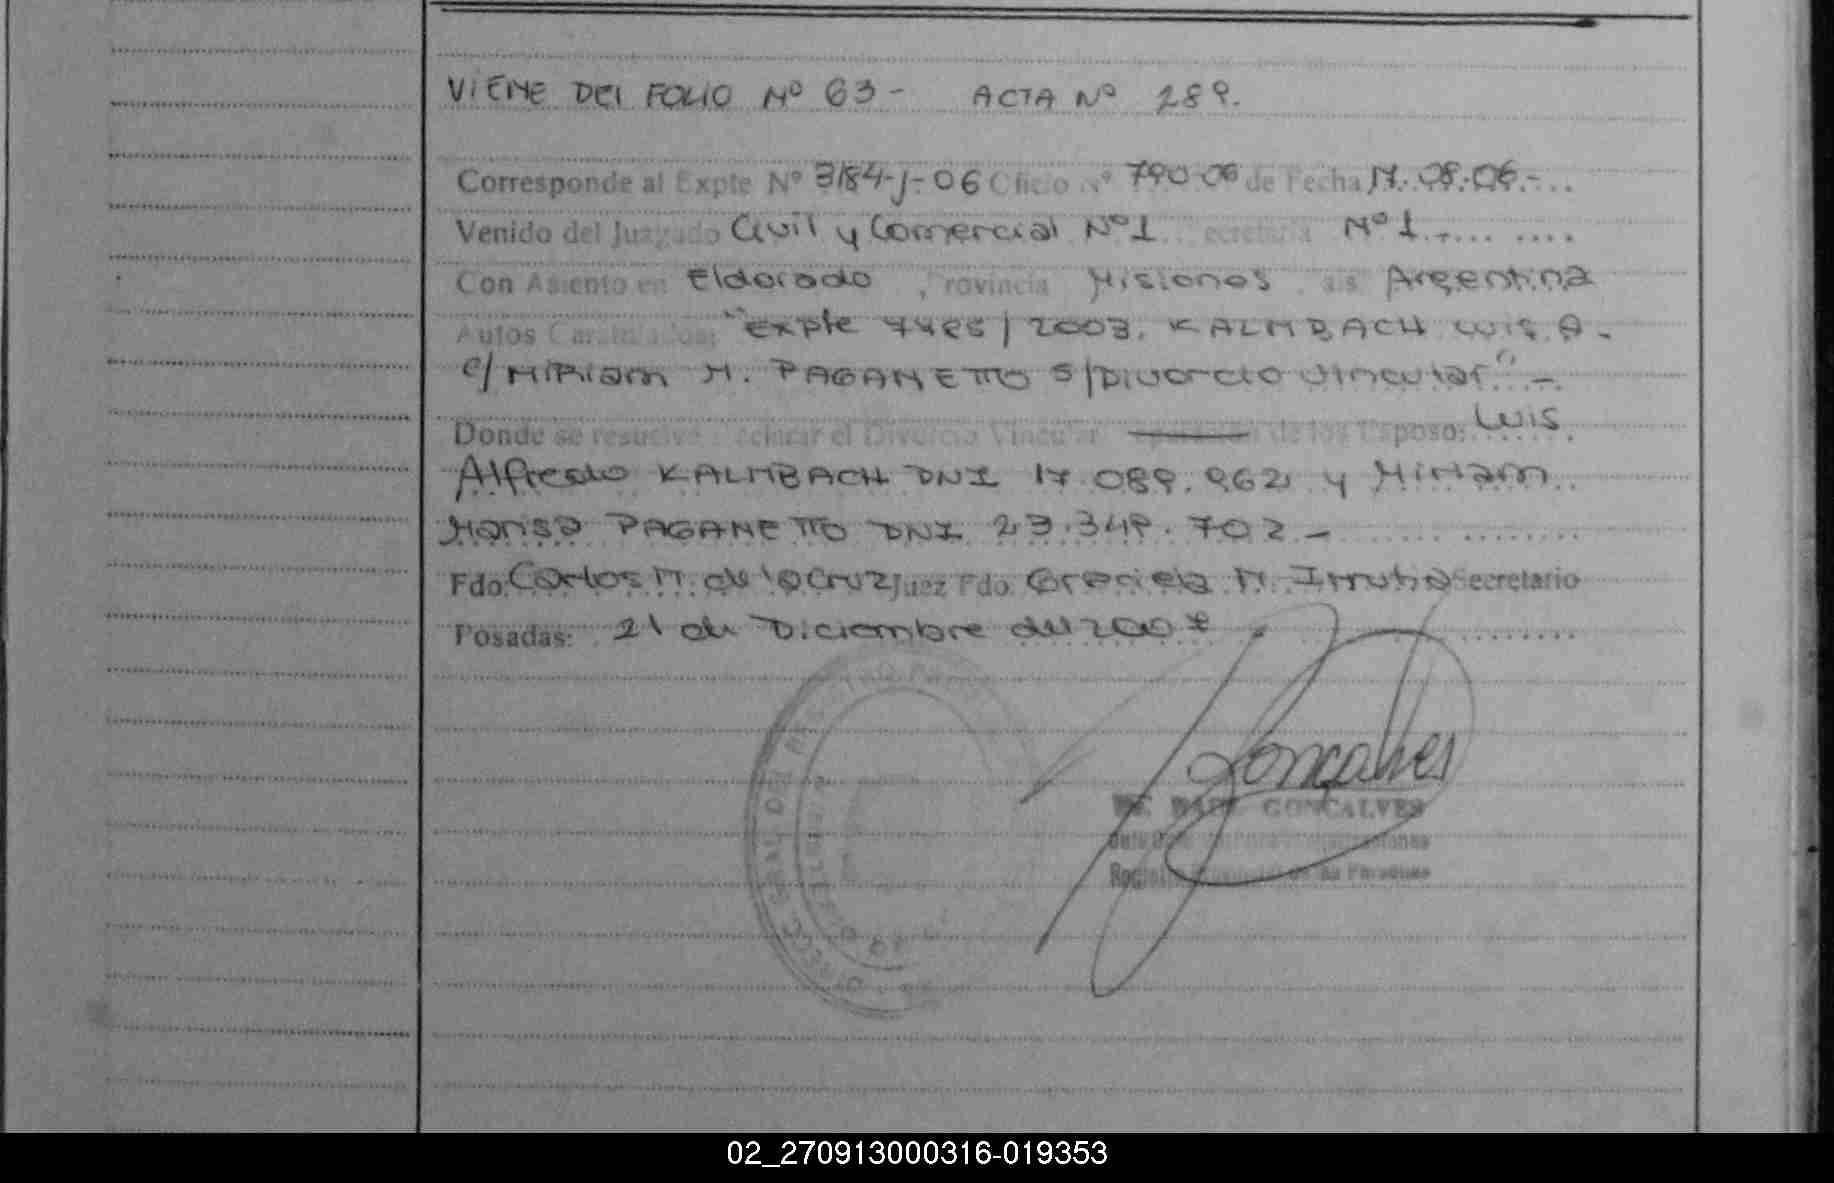 VIENE DEL FOLIO Nº 63 - ACTA Nº 289.
Corresponde al Expte Nº 3184-J-06 Oficio Nº 790-06 de Fecha 17.08.06.-
Venido del Juzgado Civil y Comercial Nº1 ecretaria Nº1
Con Asiento en Eldorado, Provincia Misiones. ais Argentina
Autos Caratulados: "Expte /2003. KALMBACH LUIS A.
c/ Miriam M. PAGANETTO s/Divorcio Vincular" -
Donde se resuelve: eclarar el Divorcio Vincular de los Esposo: Luis
Alfredo KALMBACH DNI 17.089.962 y Miriam
Marisa PAGANETTO DNI 23.349.702 -
Fdo. Carlos M. de la Cruz Juez Fdo. Graciela M. Secretario
Posadas: 21 de Diciembre del
Goncalves
GONCALVES
02_270913000316-019353